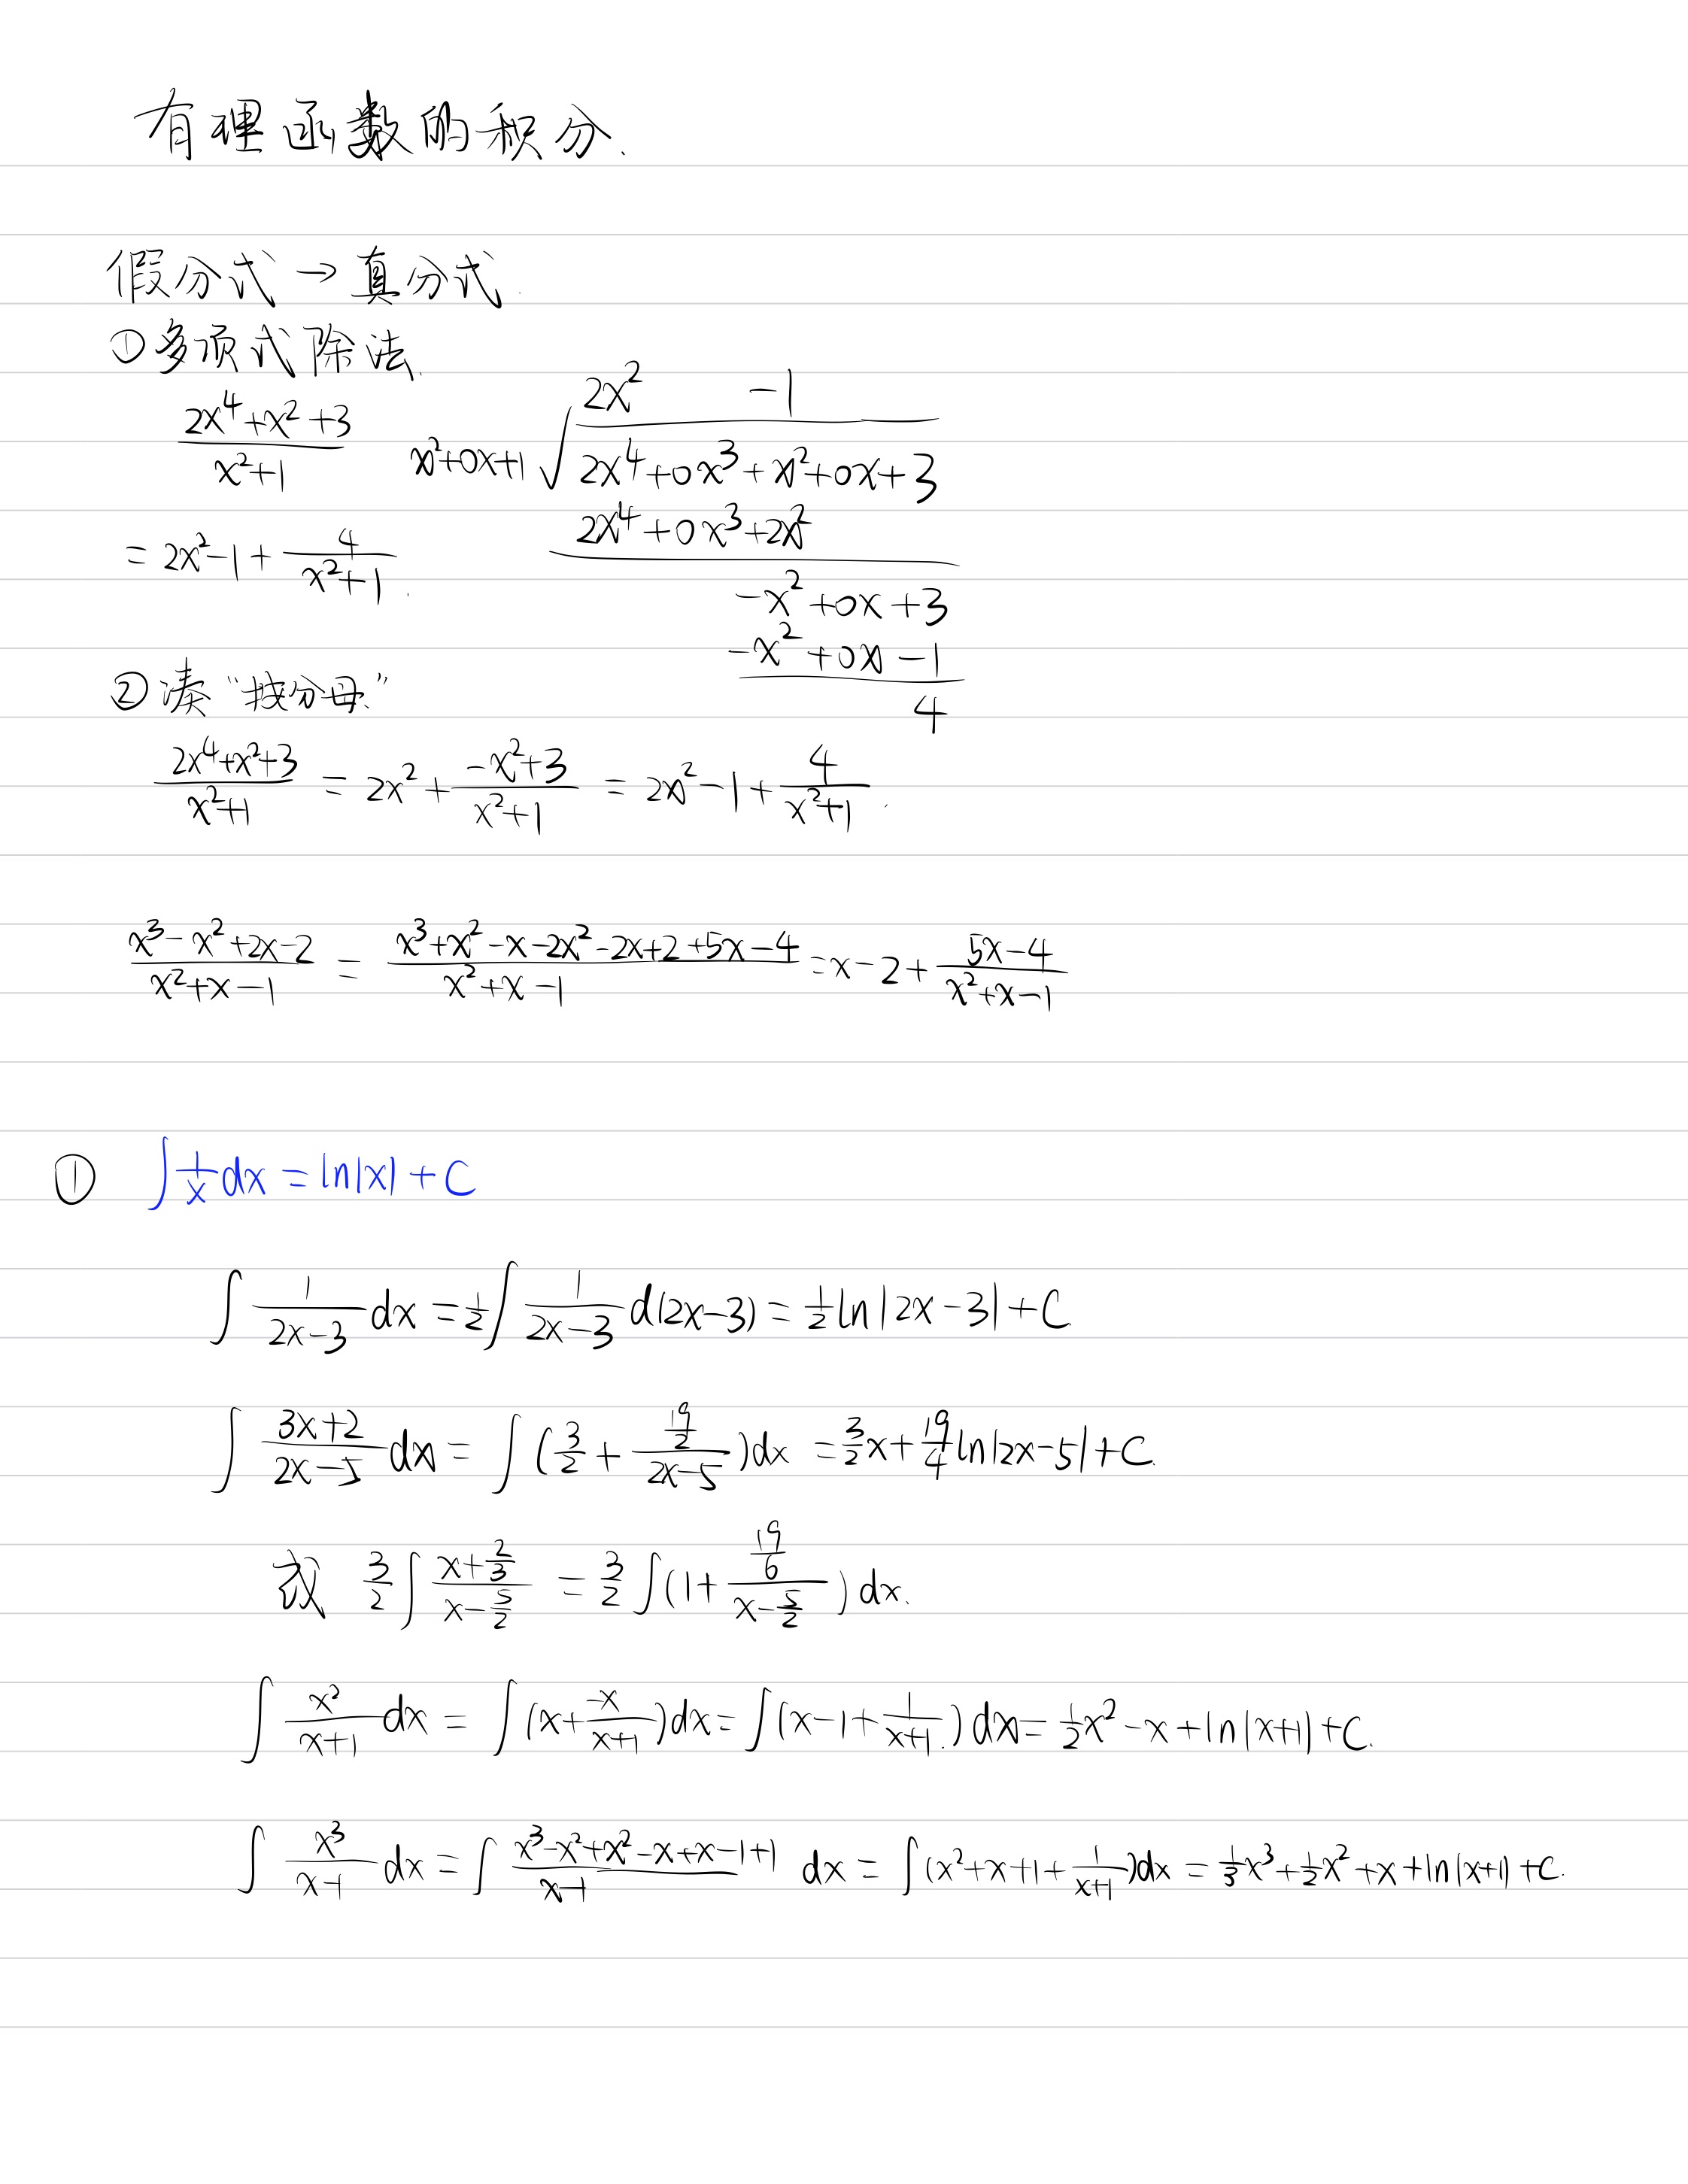 有理函数的积分.
假分式 → 真分式.
① 多项式除法.
\frac{2x^4+x^2+3}{x^2+1}
= 2x^2-1+\frac{4}{x^2+1}.
2x^2 -1
x^2+0x+1 √ 2x^4+0x^3+x^2+0x+3
2x^4+0x^3+2x^2
-x^2+0x+3
-x^2+0x-1
4
② 凑 “找分母.”
\frac{2x^4+x^2+3}{x^2+1} = 2x^2+\frac{-x^2+3}{x^2+1} = 2x^2-1+\frac{4}{x^2+1}.
\frac{x^3-x^2+2x-2}{x^2+x-1} = \frac{x^3+x^2-x-2x^2-2x+2+5x-4}{x^2+x-1} = x-2+\frac{5x-4}{x^2+x-1}
① ∫\frac{1}{x}dx = ln|x|+C
∫\frac{1}{2x-3}dx = \frac{1}{2}∫\frac{1}{2x-3}d(2x-3) = \frac{1}{2}ln|2x-3|+C.
∫\frac{3x+2}{2x-5}dx = ∫(\frac{3}{2}+\frac{\frac{19}{2}}{2x-5})dx = \frac{3}{2}x+\frac{19}{4}ln|2x-5|+C.
或 \frac{3}{2}∫\frac{x+\frac{2}{3}}{x-\frac{5}{2}} = \frac{3}{2}∫(1+\frac{\frac{19}{6}}{x-\frac{5}{2}})dx.
∫\frac{x^2}{x+1}dx = ∫(x+\frac{-x}{x+1})dx = ∫(x-1+\frac{1}{x+1.})dx = \frac{1}{2}x^2-x+ln|x+1|+C.
∫\frac{x^3}{x-1}dx = ∫\frac{x^3-x^2+x^2-x+x-1+1}{x-1}dx = ∫(x^2+x+1+\frac{1}{x+1})dx = \frac{1}{3}x^3+\frac{1}{2}x^2+x+ln|x+1|+C.